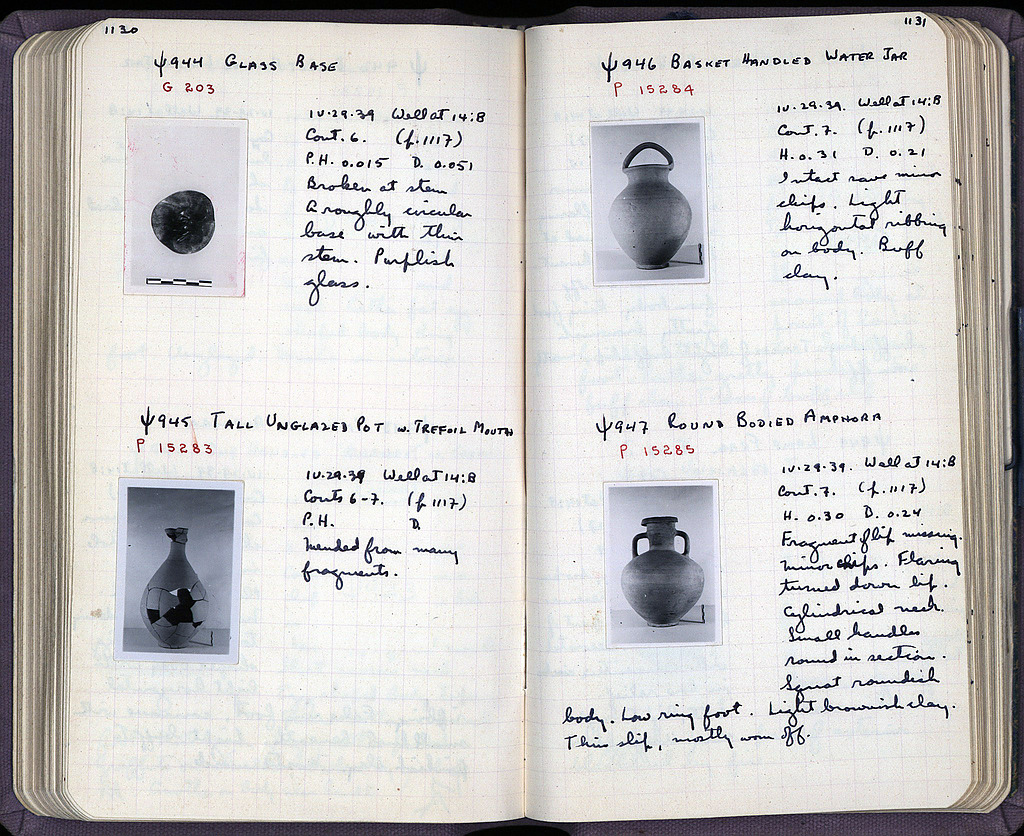 1130
Ψ944 GLASS BASE
G 203
IV.29.39 Well at 14:B
Cont. 6. (p. 1117)
P.H. 0.015 D. 0.051
Broken at stem
A roughly circular
base with thin
stem. Purplish
glass.
Ψ945 TALL UNGLAZED POT W. TREFOIL MOUTH
P 15283
IV.29.39 Well at 14:B
Conts 6-7. (p. 1117)
P.H. D.
Mended from many
fragments.
1131
Ψ946 BASKET HANDLED WATER JAR
P 15284
IV.29.39. Well at 14:B
Cont. 7. (p. 1117)
H. 0.31 D. 0.21
Intact save minor
chips. Light
horizontal ribbing
on body. Buff
clay.
Ψ947 ROUND BODIED AMPHORA
P 15285
IV.29.39. Well at 14:B
Cont. 7. (p. 1117)
H. 0.30 D. 0.24
Fragment of lip missing.
Minor chips. Flaring
turned down lip.
Cylindrical neck.
Small handles
round in section.
Squat roundish
body. Low ring foot. Light brownish clay.
Thin slip, mostly worn off.